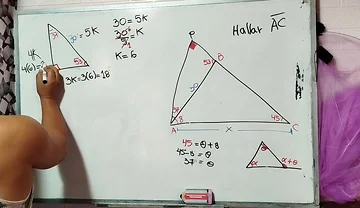 30 = 5K
30/5 = K
K = 6
37
= 5K
4K
4(6)=
53
3K = 3(6) = 18
Hallar AC
P
B
30
37
8
45
A
x
C
45 = θ + 8
45 - 8 = θ
37 = θ
θ
α
α+θ